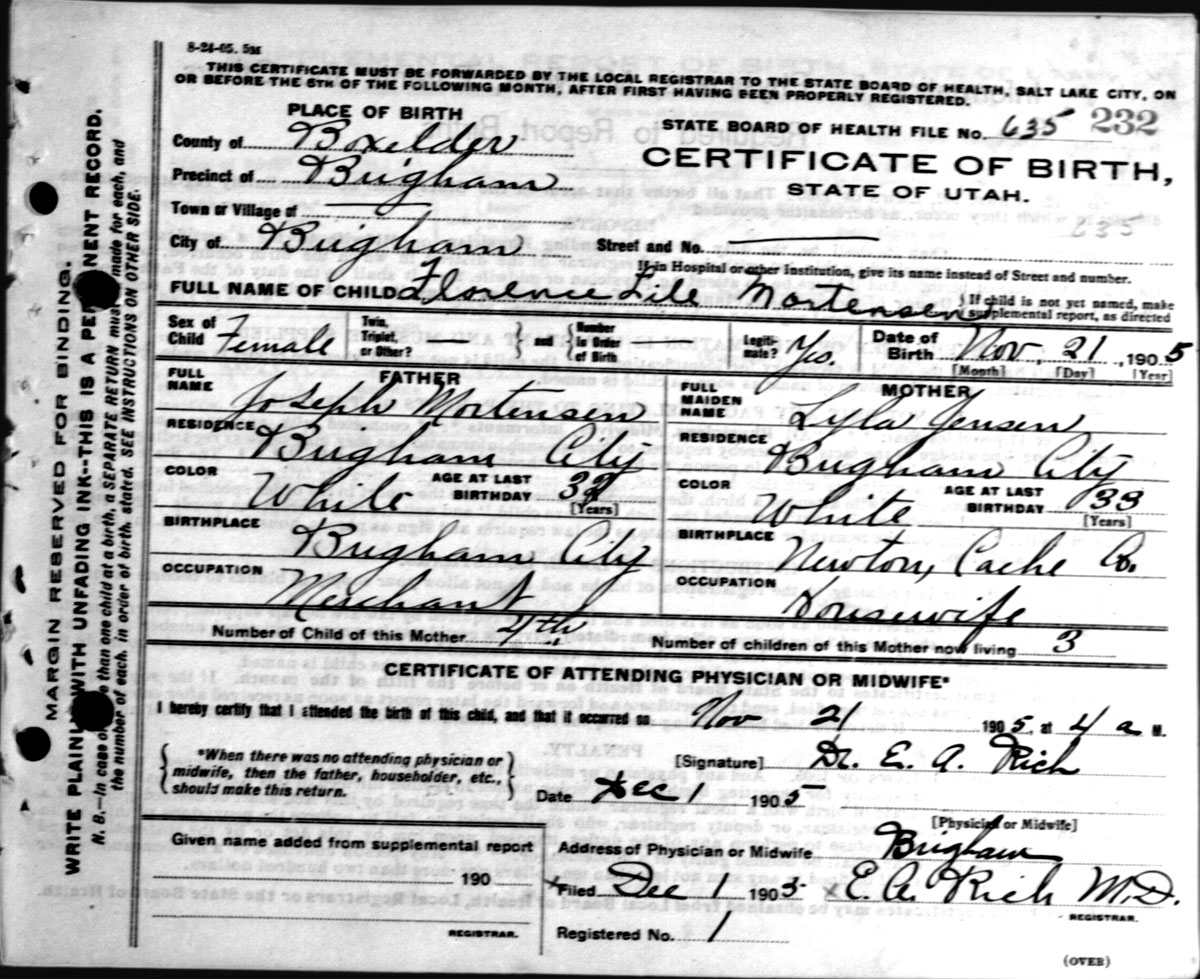 8-24-05. 5M
THIS CERTIFICATE MUST BE FORWARDED BY THE LOCAL REGISTRAR TO THE STATE BOARD OF HEALTH, SALT LAKE CITY, ON
OR BEFORE THE 5TH OF THE FOLLOWING MONTH, AFTER FIRST HAVING BEEN PROPERLY REGISTERED.
PLACE OF BIRTH
STATE BOARD OF HEALTH FILE No. 635 232
County of Boxelder
CERTIFICATE OF BIRTH,
Precinct of Brigham
STATE OF UTAH.
Town or Village of
635
City of Brigham Street and No.
If in Hospital or other Institution, give its name instead of Street and number.
FULL NAME OF CHILD Florence Lile Mortensen { If child is not yet named, make
supplemental report, as directed
Sex of Child Female Twin, Triplet, or Other? } and { Number in Order of Birth Legiti-mate? Yes. Date of Birth Nov, 21, 1905
[Month] [Day] [Year]
FATHER
FULL NAME Joseph Mortensen
MOTHER
FULL MAIDEN NAME Lyla Jensen
RESIDENCE Brigham City
RESIDENCE Brigham City
COLOR White AGE AT LAST BIRTHDAY 32 [Years]
COLOR White AGE AT LAST BIRTHDAY 33 [Years]
BIRTHPLACE Brigham City
BIRTHPLACE Newton, Cache Co.
OCCUPATION Merchant
OCCUPATION Housewife
Number of Child of this Mother 4th Number of children of this Mother now living 3
CERTIFICATE OF ATTENDING PHYSICIAN OR MIDWIFE*
I hereby certify that I attended the birth of this child, and that it occurred on Nov 21 1905, at 4 a M.
{ *When there was no attending physician or
midwife, then the father, householder, etc.,
should make this return. }
[Signature] Dr. E. A. Rich
Date Dec 1 1905
[Physician or Midwife]
Given name added from supplemental report
190
REGISTRAR.
Address of Physician or Midwife Brigham
Filed Dec 1 1905 x E. A. Rich M.D.
REGISTRAR.
Registered No. 1
(OVER)
MARGIN RESERVED FOR BINDING.
WRITE PLAINLY WITH UNFADING INK--THIS IS A PERMANENT RECORD.
N. B.—In case of more than one child at a birth, a SEPARATE RETURN must be made for each, and
the number of each, in order of birth, stated. SEE INSTRUCTIONS ON OTHER SIDE.